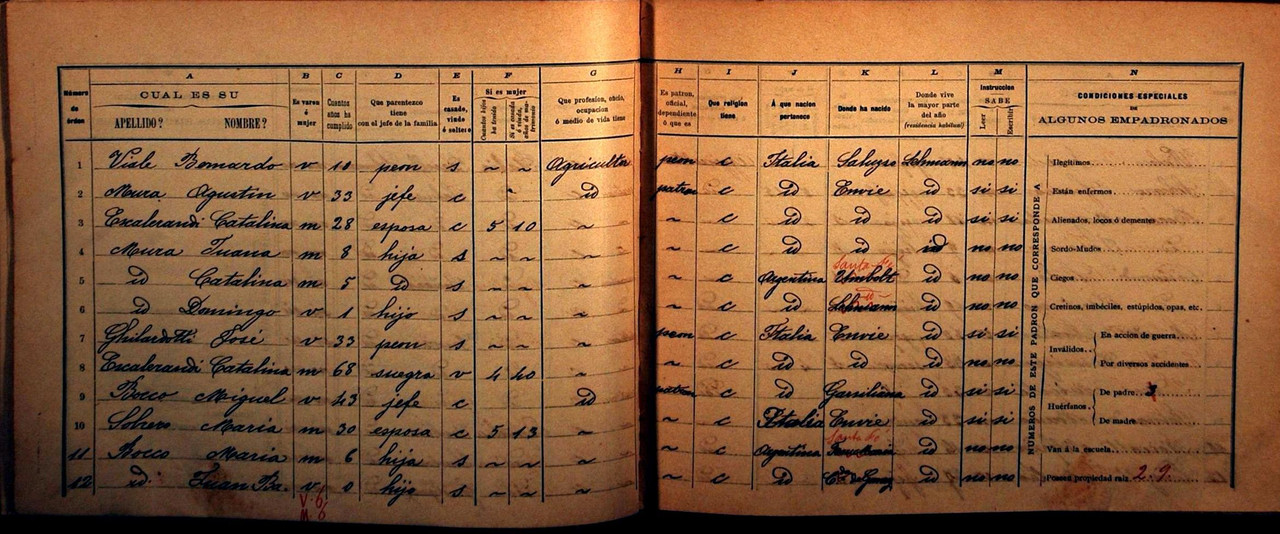 A B C D E F G H I J K L M N
Número de órden
CUAL ES SU
APELLIDO? NOMBRE?
Es varon ó mujer
Cuantos años ha cumplido
Que parentezco tiene con el jefe de la familia
Es casado, viudo ó soltero
Si es mujer
Cuantos hijos ha tenido
Que profesion, oficio, ocupacion ó medio de vida tiene
Es patron, oficial, dependiente ó que es
Que religion tiene
Á que nacion pertenece
Donde ha nacido
Donde vive la mayor parte del año (residencia habitual)
Instruccion
SABE
Leer Escribir
CONDICIONES ESPECIALES
DE
ALGUNOS EMPADRONADOS
1 Viale Bernardo v 10 peon s ~ ~ Agriculta peon c Italia Saluzso Lehmann no no
2 Mura Agustin v 33 jefe c id patron c id Envie id si si
3 Escalerandi Catalina m 28 esposa c 5 10 ~ ~ c id id id si si
4 Mura Juana m 8 hija s ~ ~ ~ ~ c id id id no no
Santa Fe
5 id Catalina m 5 id s ~ ~ ~ ~ c Argentina Umbolt id no no
id
6 id Domingo v 1 hijo s ~ ~ ~ ~ c id Lehmann id no no
7 Ghilardotti José v 33 peon s ~ ~ ~ peon c Italia Envie id si si
8 Escalerandi Catalina m 68 suegra v 4 40 ~ ~ c id id id no no
9 Bocco Miguel v 43 jefe c id patron c id Garsiliana id si si
10 Solero Maria m 30 esposa c 5 13 ~ ~ c Italia Envie id si si
Santa Fe
11 Bocco Maria m 6 hija s ~ ~ ~ ~ c Argentina id no no
12 id Juan Ba. v 0 hijo s ~ ~ ~ ~ c id id no no
V. 6
M. 6
NUMEROS DE ESTE PADRON QUE CORRESPONDE A
Ilegítimos
Están enfermos
Alienados, locos ó dementes
Sordo-Mudos
Ciegos
Cretinos, imbéciles, estúpidos, opas, etc.
Inválidos. En acción de guerra
Por diversos accidentes
Huérfanos. De padre
De madre
Van á la escuela
Poseen propiedad raiz 2. 9.